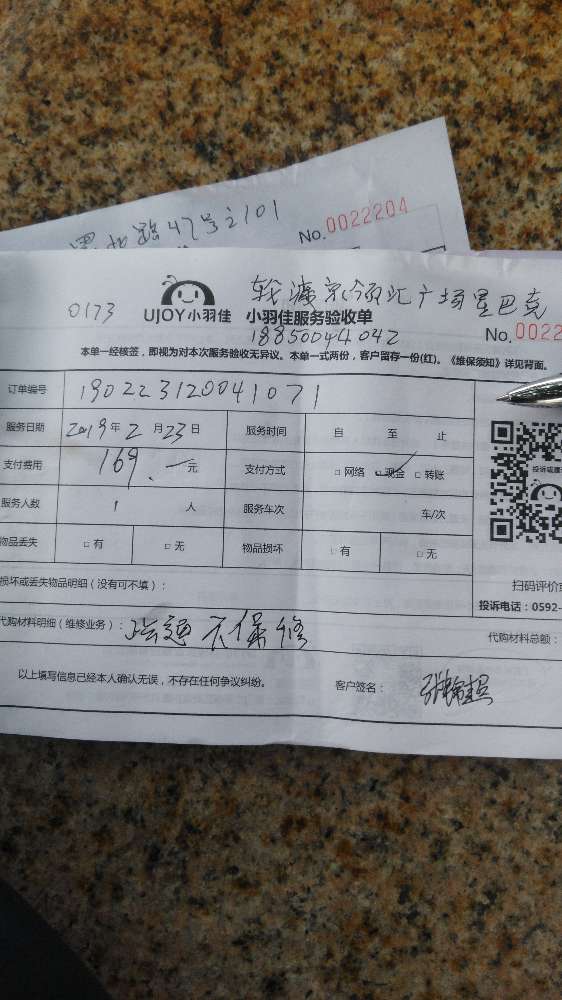 47号之101
No. 0022204
轮渡京领汇广场星巴克
0173 UJOY小羽佳 小羽佳服务验收单
18850044042
No. 0022
本单一经核签，即视为对本次服务验收无异议。本单一式两份，客户留存一份(红)。《维保须知》详见背面。
订单编号 190223120041071
服务日期 2019年2月23日 服务时间 自 至 止
支付费用 169.一元 支付方式 □网络 ☑现金 □转账
服务人数 1 人 服务车次 车/次
物品丢失 □有 □无 物品损坏 □有 □无
损坏或丢失物品明细（没有可不填）：
扫码评价
投诉电话：0592-
代购材料明细（维修业务）： 疏通不保修
代购材料总额：
以上填写信息已经本人确认无误，不存在任何争议纠纷。 客户签名：